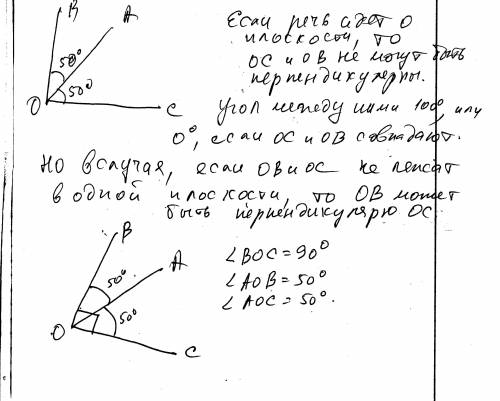 B
A
50°
50°
O
C
Если речь идет о
плоскости, то
OC и OB не могут быть
перпендикулярны.
Угол между ними 100°, или
0°, если OC и OB совпадают.
Но в случая, если OB и OC не лежат
в одной плоскости, то OB может
быть перпендикулярю OC.
B
A
50°
50°
O
C
∠BOC = 90°
∠AOB = 50°
∠AOC = 50°.